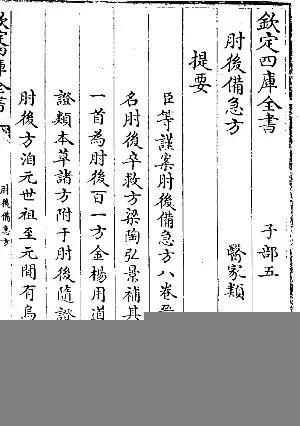 欽定四庫全書
子部五
肘後備急方
醫家類
提要
臣等謹案肘後備急方八卷
名肘後卒救方梁陶弘景補其
一首為肘後百一方金楊用道
證類本草諸方附于肘後隨證
肘後方洎元世祖至元間有烏
欽定四庫全書
肘後備急方